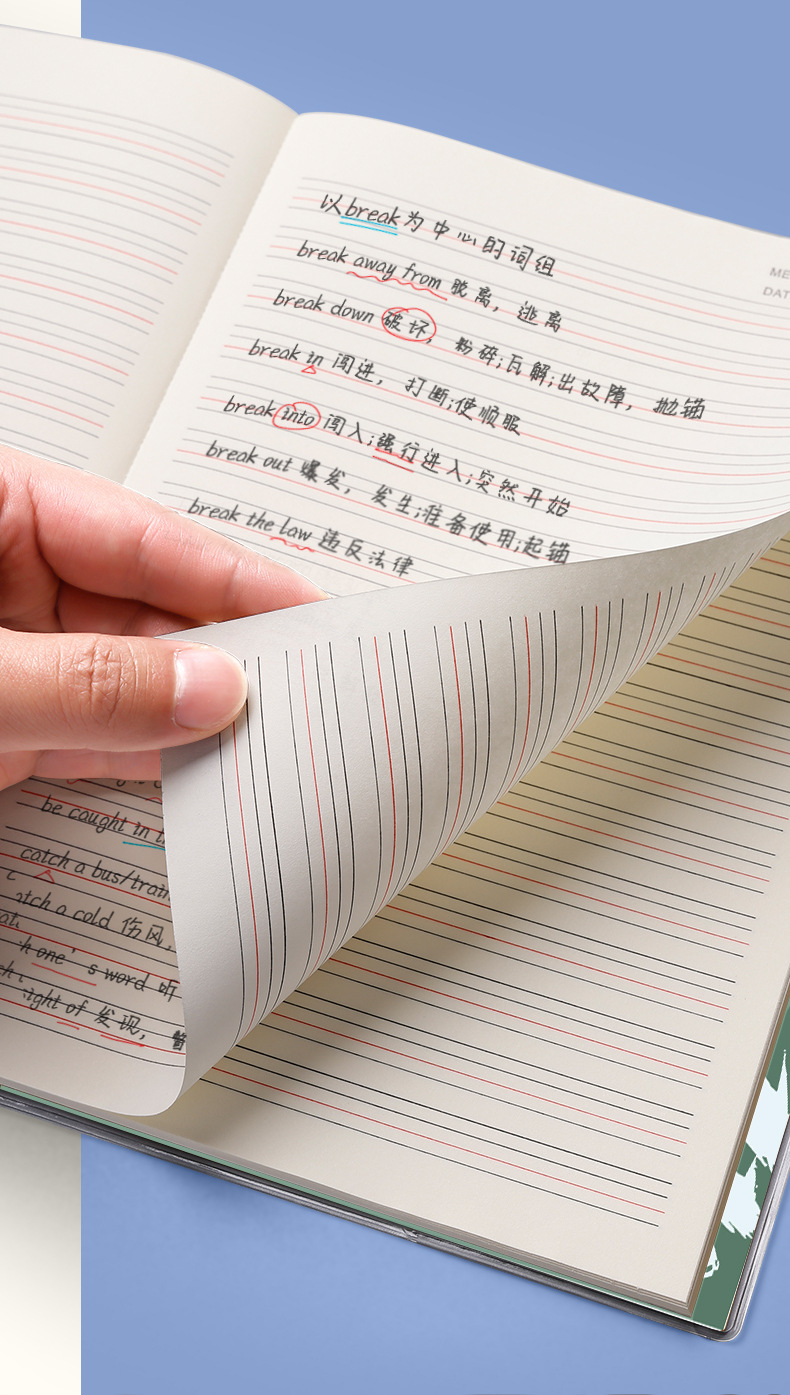 ME
DAT
以break为中心的词组
break away from 脱离，逃离
break down 破坏，粉碎;瓦解;出故障，抛锚
break in 闯进，打断;使顺服
break into 闯入;强行进入;突然开始
break out 爆发，发生;准备使用;起锚
break the law 违反法律
be caught in t
catch a bus/train
atch a cold 伤风，
h one's word 听
ight of 发现，